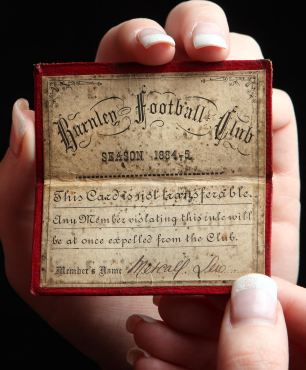 Burnley Football Club
SEASON 1884-5.
This Card is not transferable.
Any Member violating this rule will
be at once expelled from the Club.
Member's Name Metcalf